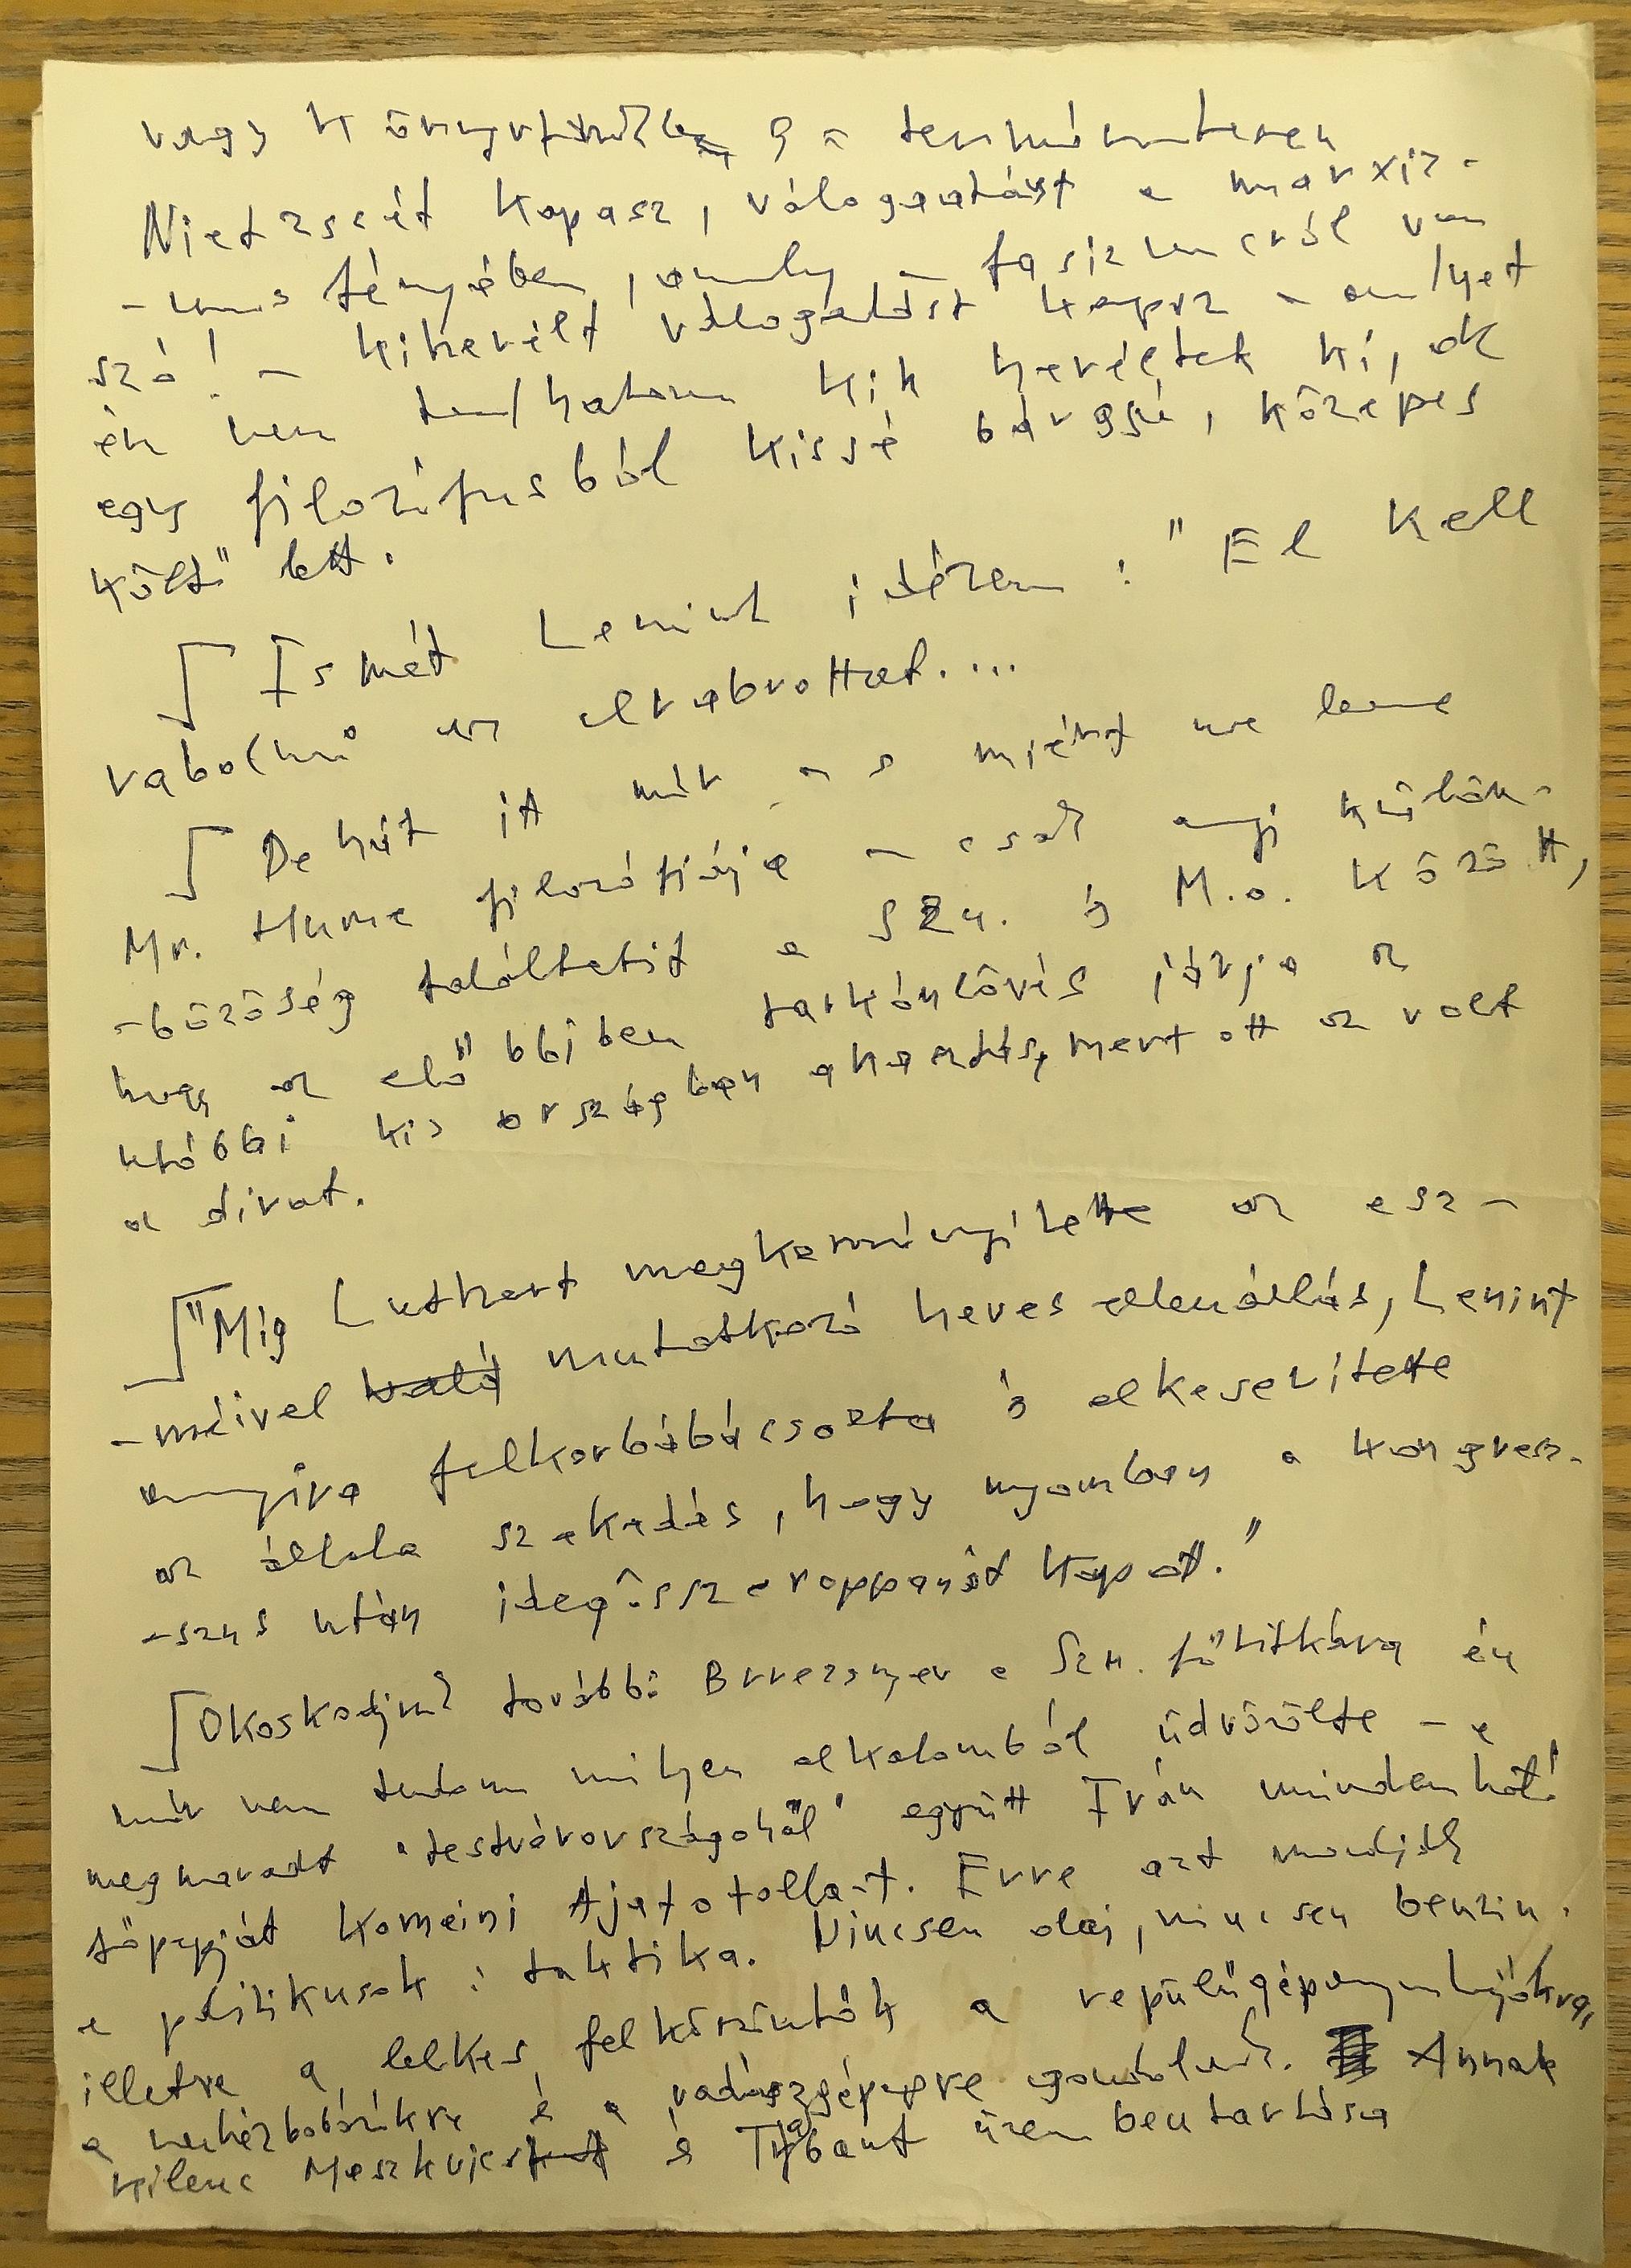 vagy
Nietzschét kapasz, válogatást a marxiz-
-mus fényében, amely – fasizmusról van
szó! – kiherélt válogatást kapsz – amelyet
én nem tudhatom kik heréltek ki, ok
egy filozófusból kissé bárgyú, közepes
költő lett.
Ismét Lenint idézem: "El kell
rabolni az elraboltat....
De hát itt már – s miért ne lenne
Mr. Hume filozófiája – csak annyi külön-
-bözőség találtatik a SZU. és M.o. között,
hogy az előbbiben tarkónlövés járja az
utóbbi kis országban akasztás, mert ott az volt
a divat.
"Míg Luthert megkeményítette az esz-
-méivel mutatkozó heves ellenállás, Lenint
annyira felkorbácsolta és elkeserítette
az általa szakadás, hogy nyomban a kongresz-
-szus után idegösszeroppanást kapott."
Okoskodjunk tovább: Brezsnyev a Szu. főtitkára én
már nem tudom milyen alkalomból üdvözölte – a
megmaradt "testvérországokkal" együtt Irán mindenható
főpapját Komeini Ajatollah-t. Erre azt mondják
a politikusok: taktika. Nincsen olaj, nincsen benzin.
illetve a lelkes felköszöntők a repülőgépanyahajókra,
a nehézbombázókra és a vadászgépekre gondolnak. Annak
kilenc és Trabant üzembentartása